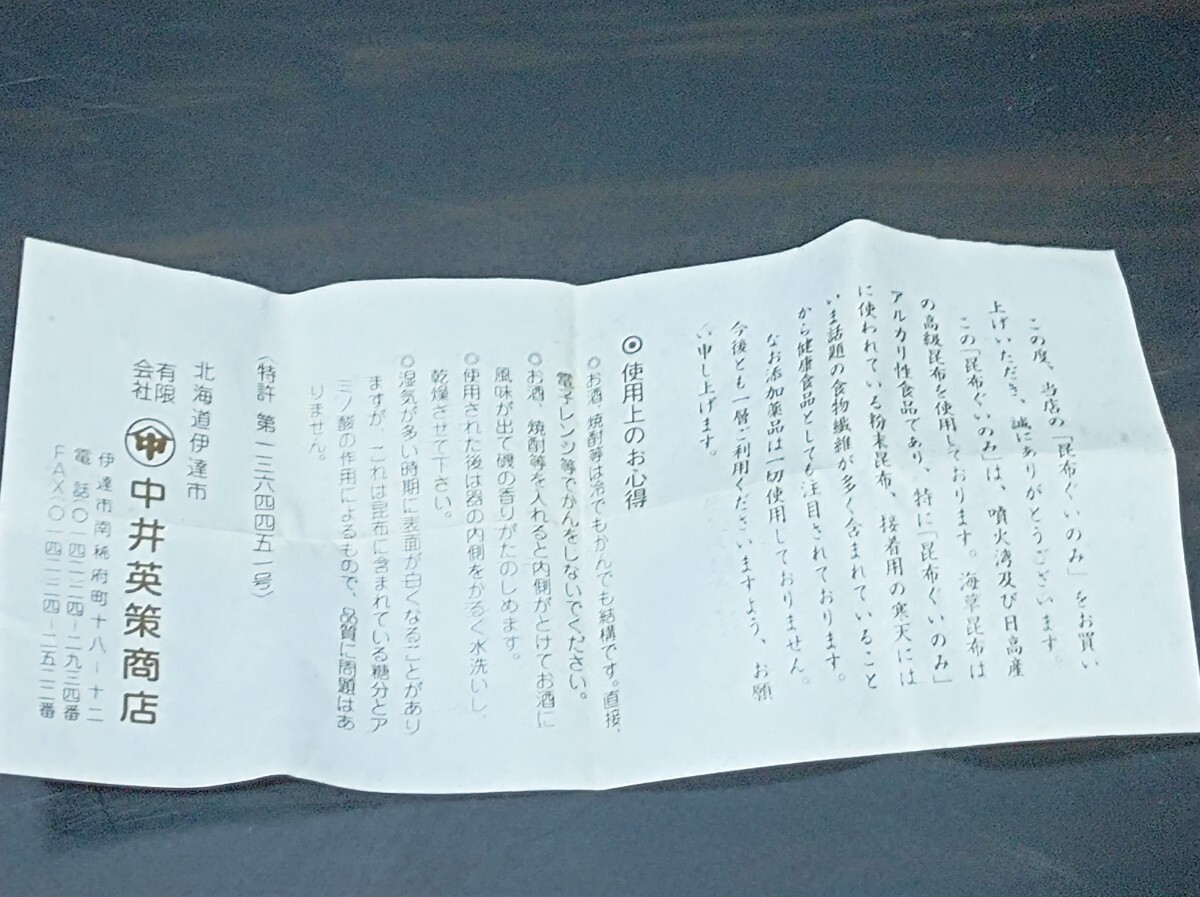 この度、当店の「昆布ぐいのみ」をお買い
上げいただき、誠にありがとうございます。
この「昆布ぐいのみ」は、噴火湾及び日高産
の高級昆布を使用しております。海草昆布は
アルカリ性食品であり、特に「昆布ぐいのみ」
に使われている粉末昆布、接着用の寒天には
いま話題の食物繊維が多く含まれていること
から健康食品としても注目されております。
なお添加薬品は一切使用しておりません。
今後とも一層ご利用くださいますよう、お願
い申し上げます。
◉使用上のお心得
◎お酒、焼酎等は冷でもかんでも結構です。直接、
電子レンジ等でかんをしないでください。
◎お酒、焼酎等を入れると内側がとけてお酒に
風味が出て磯の香りがたのしめます。
◎使用された後は器の内側をかるく水洗いし、
乾燥させて下さい。
◎湿気が多い時期に表面が白くなることがあり
ますが、これは昆布に含まれている糖分とア
ミノ酸の作用によるもので、品質に問題はあ
りません。
〈特許 第一三六四四五一号〉
北海道伊達市
有限会社 中 中井英策商店
伊達市南稀府町十八ー十二
電 話〇一四二ー二四ー二九三四番
FAX〇一四二ー二四ー二五二二番